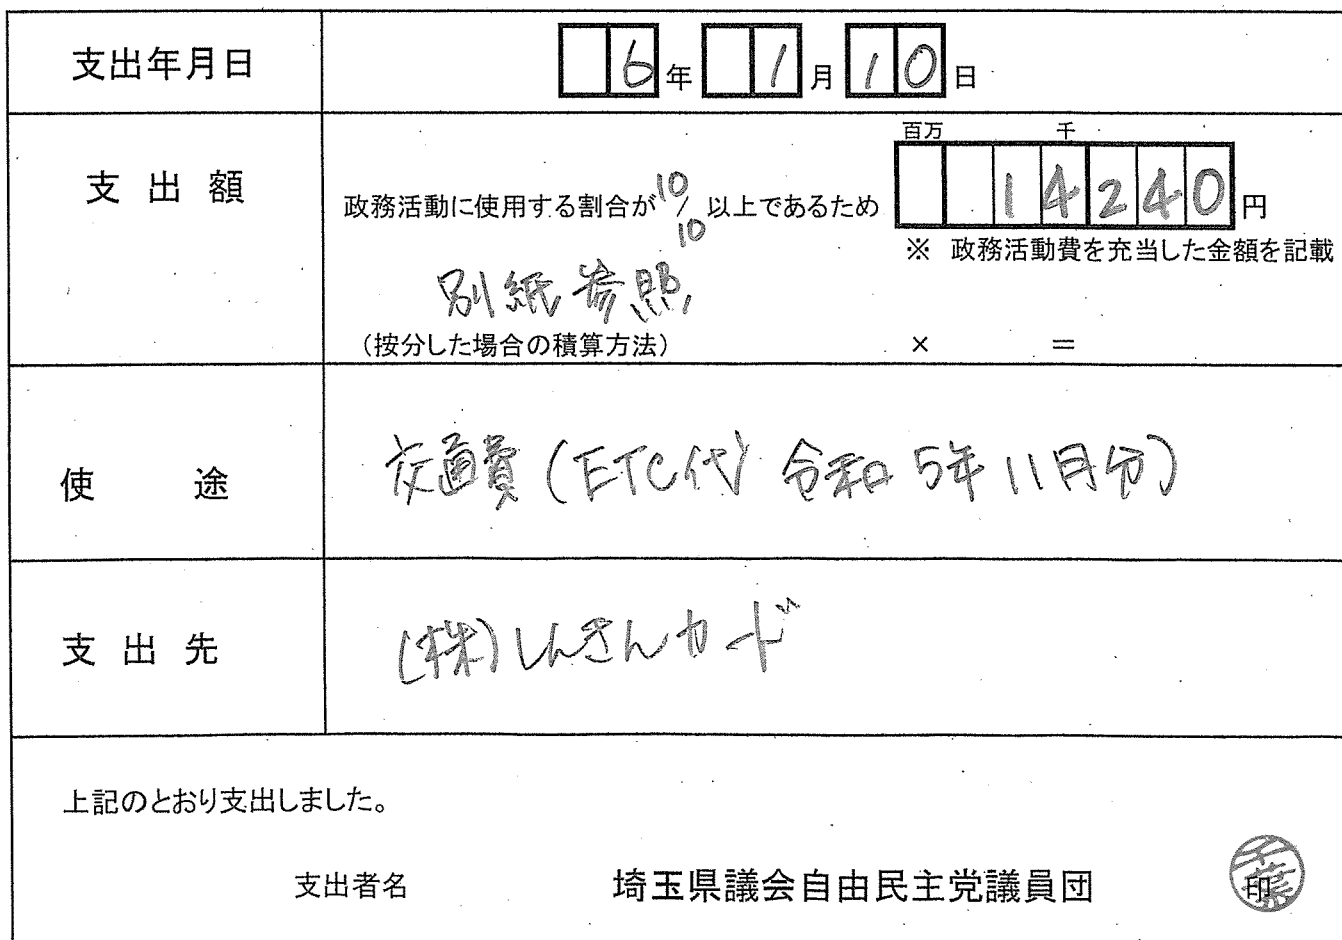 支出年月日 6年 1月 10日
百万 千
支出額 政務活動に使用する割合が10/10以上であるため 14240円
※ 政務活動費を充当した金額を記載
別紙参照
(按分した場合の積算方法) × =
使途 交通費(ETC代 令和5年11月分)
支出先 (株)しんきんカード
上記のとおり支出しました。
支出者名 埼玉県議会自由民主党議員団 印
千葉